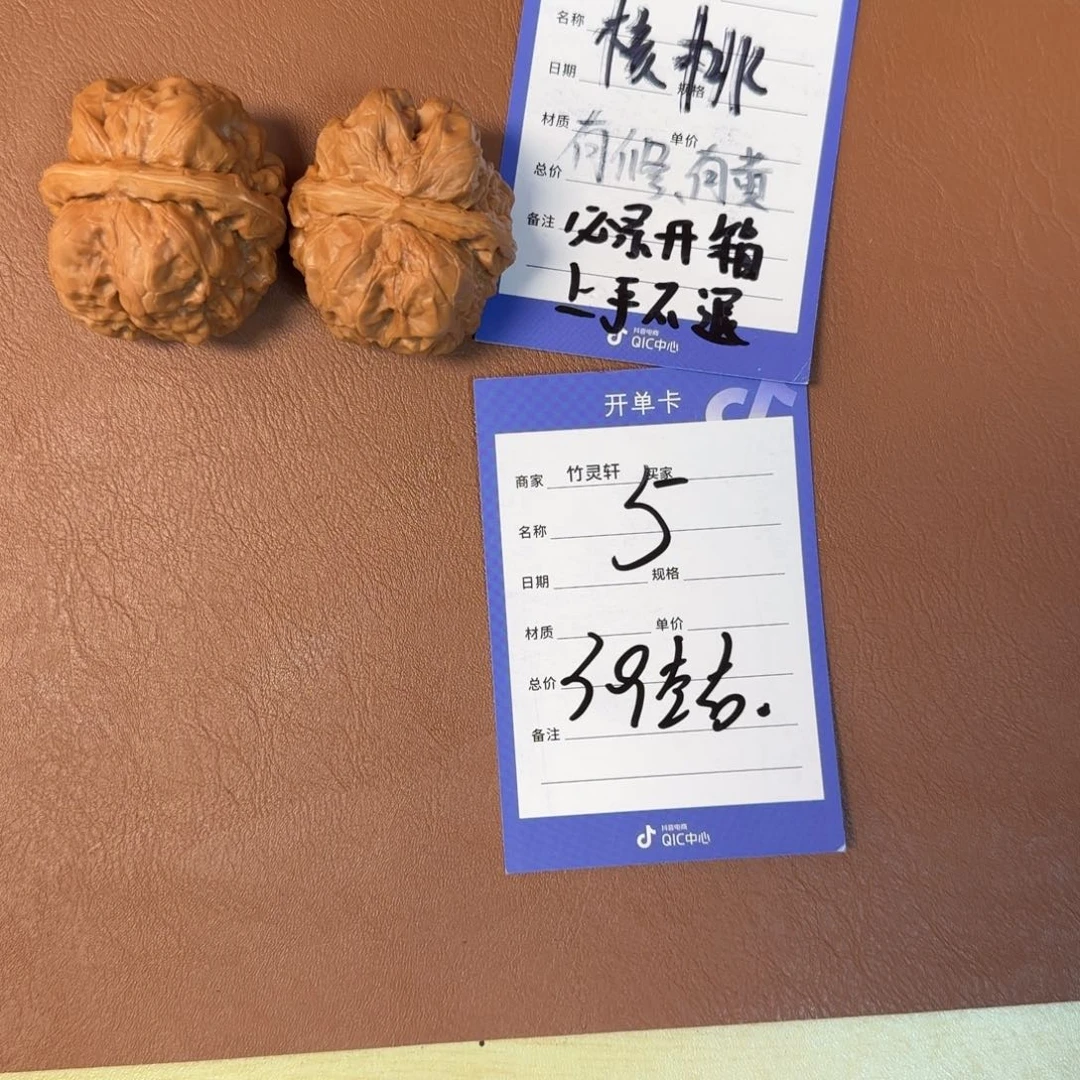 名称 核桃
日期 规格
材质 单价
有修、有黄
总价
备注 必录开箱
上手不退
抖音电商
QIC中心
开单卡
商家 竹灵轩 买家
5
名称
日期 规格
材质 单价
总价
备注
抖音电商
QIC中心